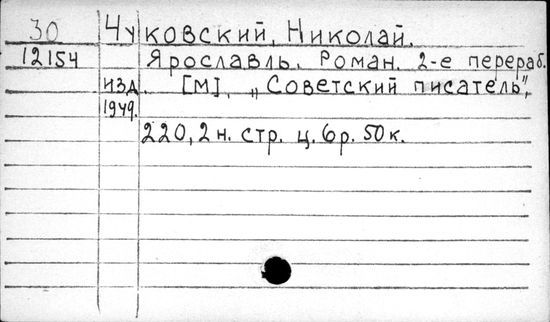 30 Чуковский, Николай.
12154 Ярославль. Роман. 2-е перераб.
изд. [М], „Советский писатель",
1949.
220, 2 н. стр. ц. 6 р. 50 к.